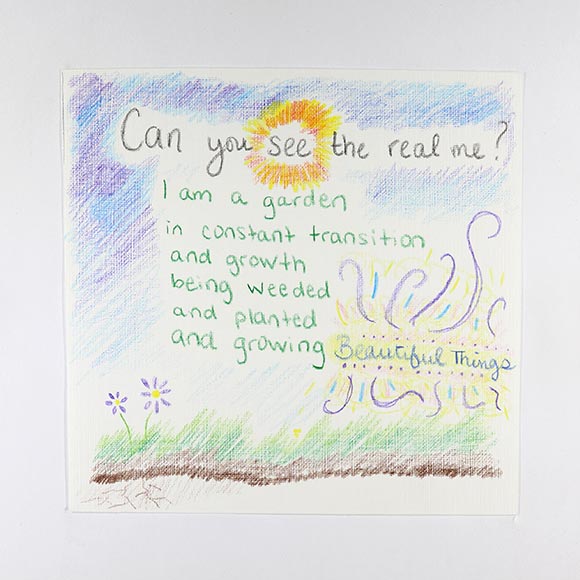 Can you see the real me?
I am a garden
in constant transition
and growth
being weeded
and planted
and growing Beautiful Things